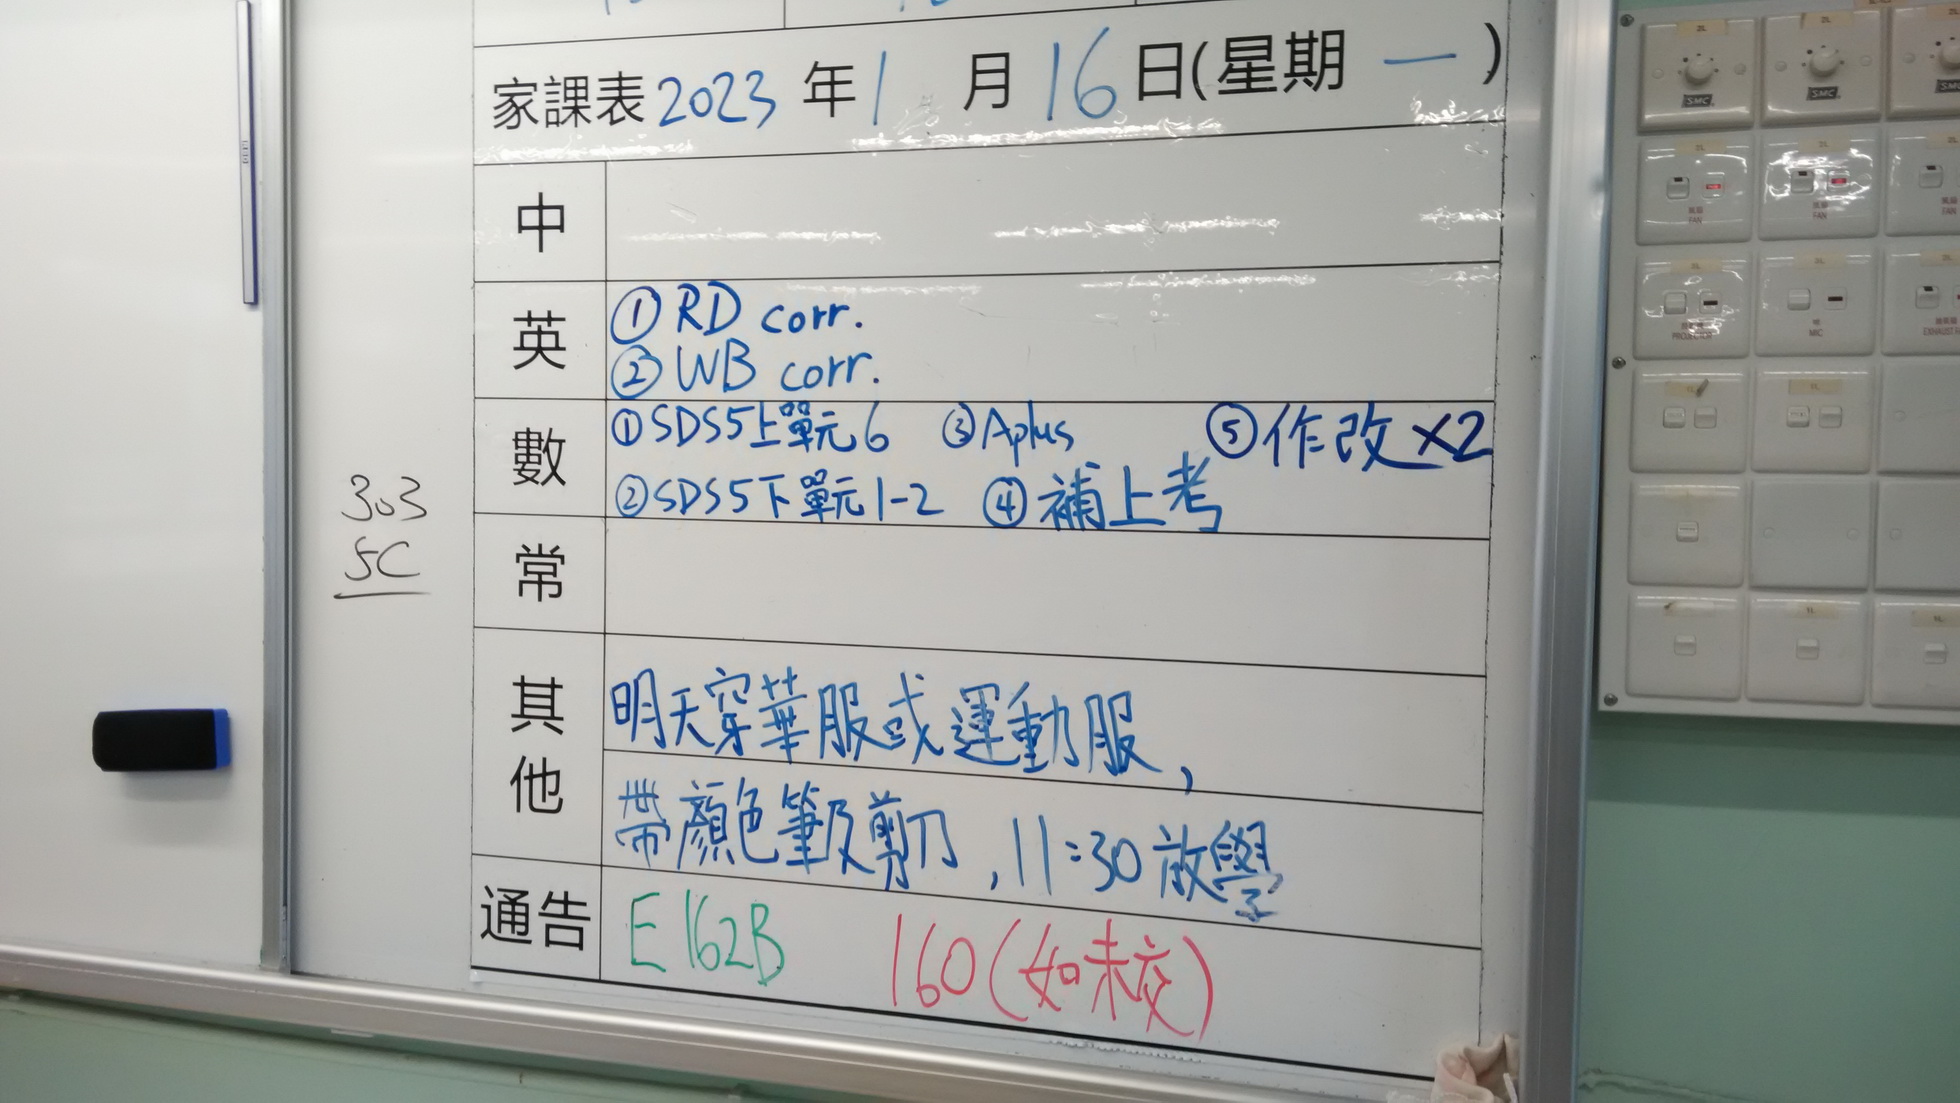 家課表 2023 年 1 月 16 日(星期 一 )
中
英
① RD corr.
② WB corr.
數
① SDS5上單元6 ③ Aplus ⑤ 作改 X2
② SDS5下單元1-2 ④ 補上考
常
其他
明天穿華服或運動服,
帶顏色筆及剪刀, 11:30 放學
通告
E 162B 160 (如未交)
303
5C
SMC
SMC
SMC
FAN
FAN
FAN
PROJECTOR
MIC